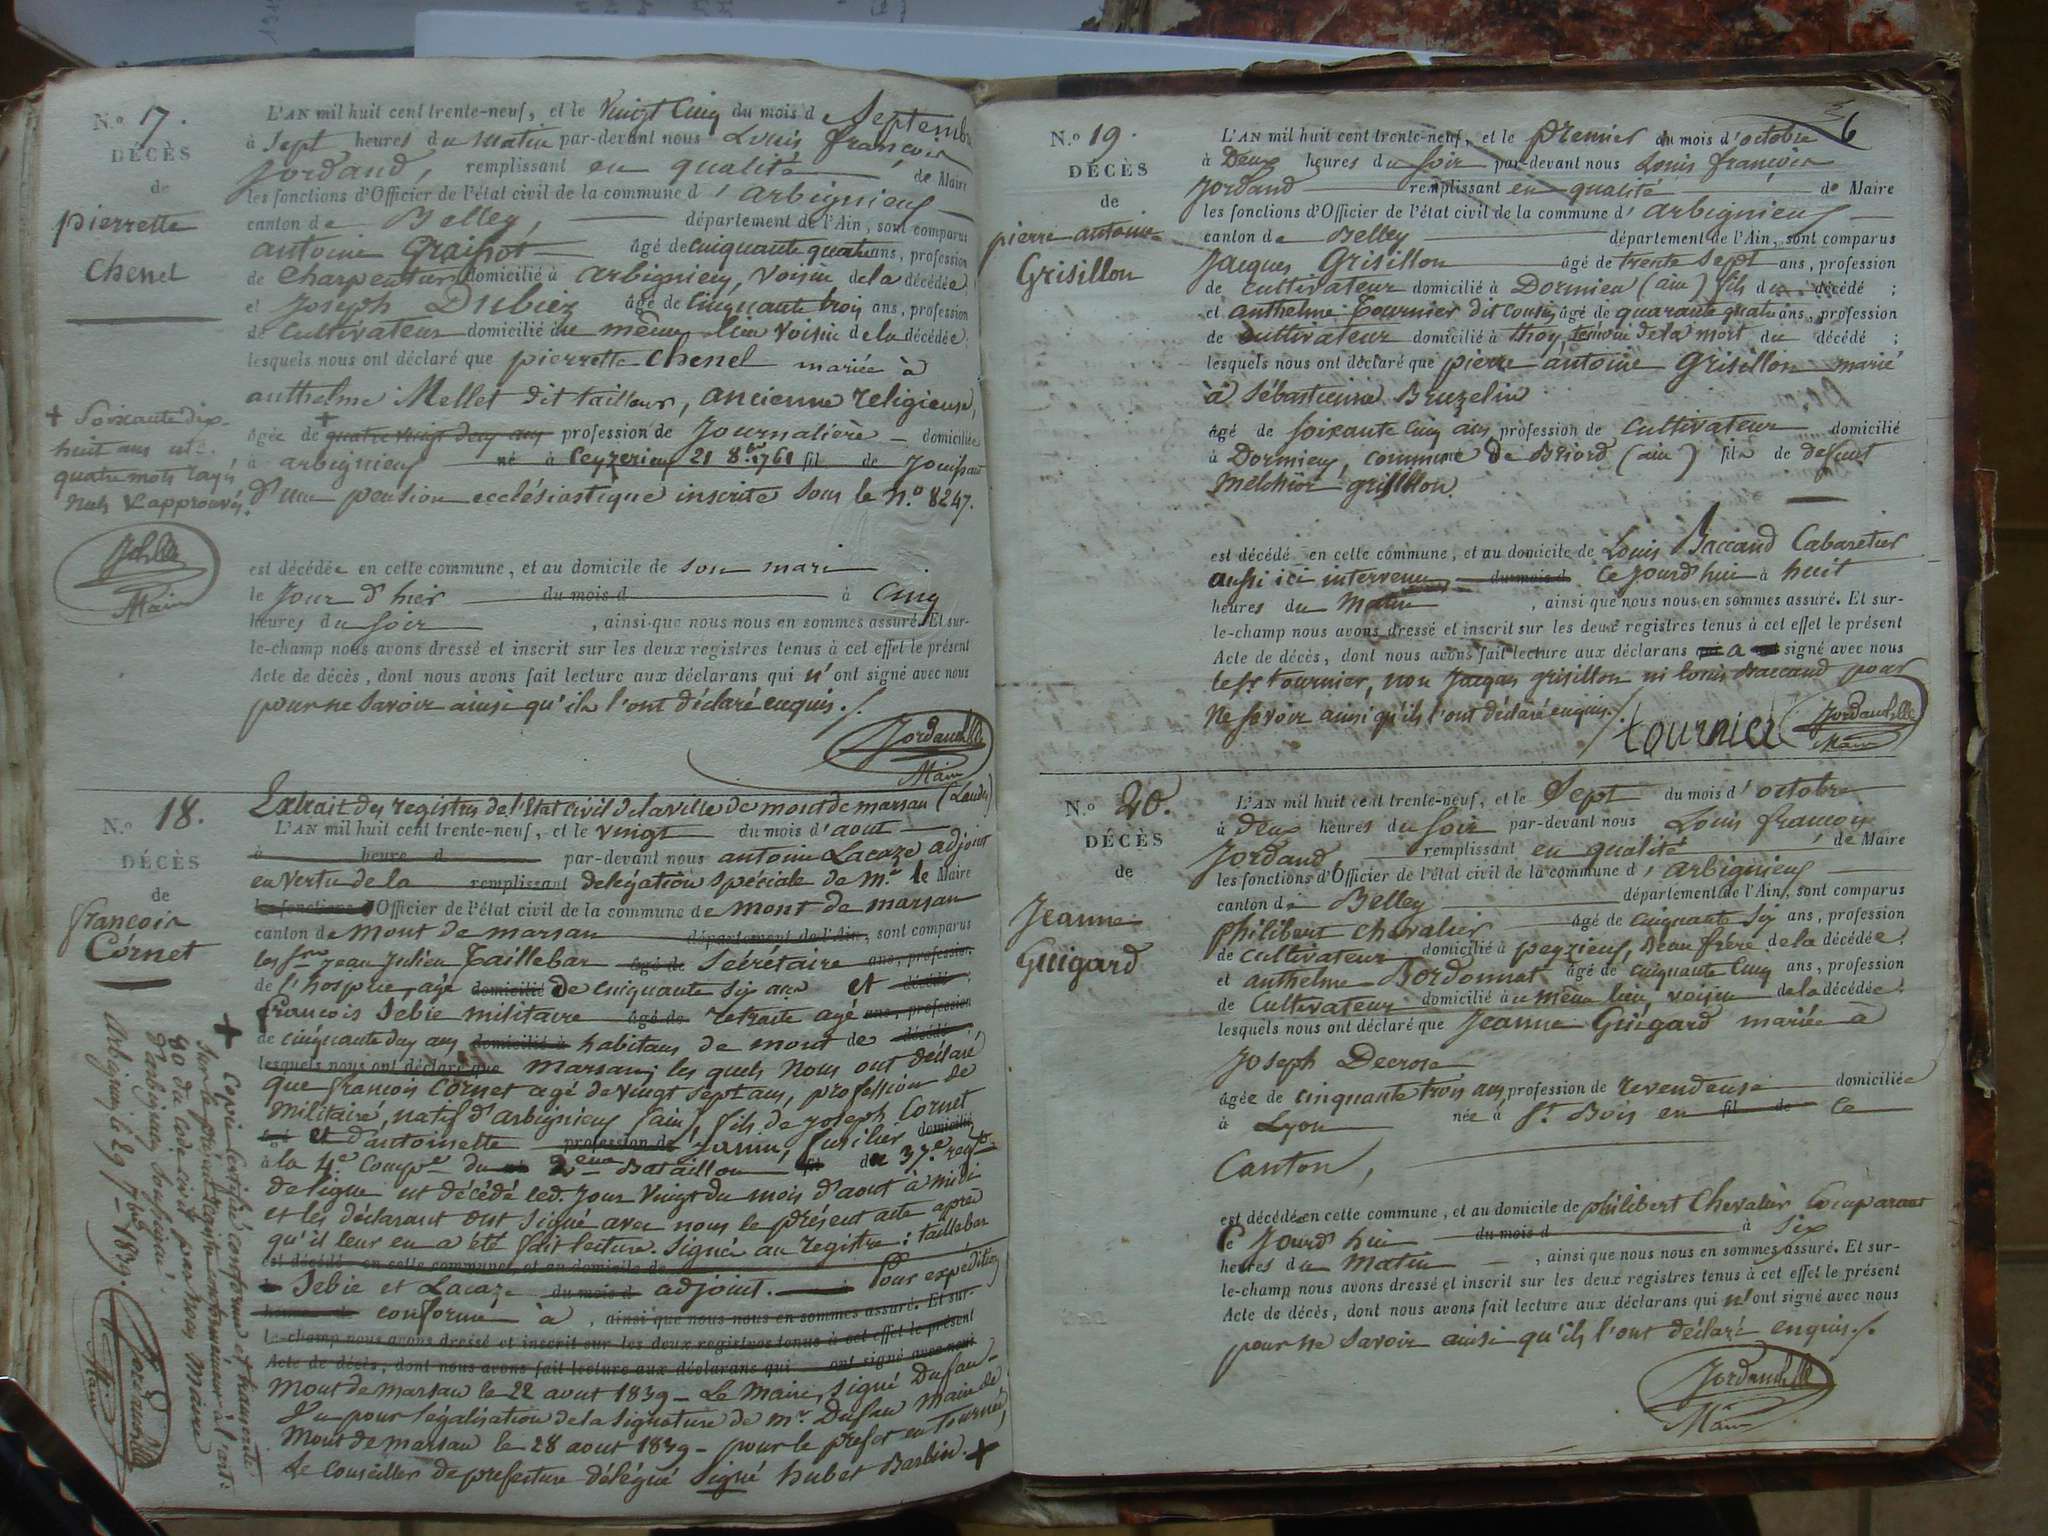 N.o 7.
DÉCÈS
de
pierrette
Chenel
L'AN mil huit cent trente-neuf, et le Vingt Cinq du mois d Septembre
à Sept heures du matin par-devant nous Louis françois
Jordand, remplissant en qualité de Maire
les fonctions d'Officier de l'état civil de la commune d'arbignieu
canton de Belley, département de l'Ain, sont comparus
antoine âgé de cinquante quatre ans, profession
de Charpentier domicilié à arbignieu, voisin de la décédée,
et Joseph Dubiez âgé de Cinquante trois ans, profession
de Cultivateur domicilié au même lieu voisin de la décédée;
lesquels nous ont déclaré que pierrette Chenel mariée à
anthelme Mellet dit tailleur, ancienne religieuse,
âgée de + quatre vingt deux ans profession de Journalière domiciliée
à arbignieu né à Ceyzerieu 21 8.bre 1761 fil de Jouissant
d'une pension ecclésiastique inscrite sous le N.o 8247.
+ Soixante dix-
huit ans et
quatre mots rayés
nuls approuvés.
Maire
est décédée en cette commune, et au domicile de son mari
le Jour d'hier du mois d à Cinq
heures du soir, ainsi que nous nous en sommes assuré. Et sur-
le-champ nous avons dressé et inscrit sur les deux registres tenus à cet effet le présent
Acte de décès, dont nous avons fait lecture aux déclarans qui n'ont signé avec nous
pour ne savoir ainsi qu'ils l'ont déclaré enquis./.
Jordand
Maire
N.o 18.
DÉCÈS
de
françois
Cornet
Extrait des registres de l'Etat civil de la ville de mont de marsan (Landes)
L'AN mil huit cent trente-neuf, et le vingt du mois d'aout
à heure d par-devant nous antoine Lacaze adjoint
en vertu de la remplissant délégation spéciale de M.r le Maire
les fonctions d'Officier de l'état civil de la commune de mont de marsan
canton de mont de marsan département de l'Ain, sont comparus
les Srs Jean Julien Taillebar âgé de Sécrétaire ans, profession
de l'hospice, agé domicilié de cinquante six ans et décédé
François Sebie militaire âgé de retraité agé ans, profession
de cinquante ans domicilié à habitans de mont de décédé
lesquels nous ont déclaré que marsan; les quels Nous ont déclaré
que françois Cornet agé de vingt sept ans, profession de
militaire, natif d'arbignieu (ain), fils de joseph Cornet
et d'antoinette profession de Jannin, fusilier domicilié
à la 4.e Comp.e du 2.eme Bataillon fil du 37.e reg.t
de ligne est décédé led. jour vingt du mois d'aout à midi
et les déclarant ont signé avec nous le présent acte après
qu'il leur en a été fait lecture. Signé au registre: taillebar
est décédé en cette commune, et au domicile de
Sebie et Lacaze du mois d adjoint. Pour expédition
heure d conforme à, ainsi que nous nous en sommes assuré. Et sur-
le-champ nous avons dressé et inscrit sur les deux registres tenus à cet effet le présent
Acte de décès, dont nous avons fait lecture aux déclarans qui ont signé avec nous
Mont de marsan le 22 aout 1839 - Le Maire, signé Dufau -
Vu pour légalisation de la signature de m.r Dufau maire de
Mont de marsan le 28 aout 1839 - pour le préfet en tournée,
Le Conseiller de préfecture délégué Signé hubet Barbin. +
+ Copie certifiée conforme et transcrite
sur le présent registre conformément à l'art:
80 du Code civil par nous Maire
d'arbignieu soussigné.
arbignieu le 29 7bre 1839.
Maire
6
N.o 19.
DÉCÈS
de
pierre antoine
Grisillon
L'AN mil huit cent trente-neuf, et le premier du mois d'octobre
à Deux heures du soir par-devant nous Louis françois
Jordand remplissant en qualité de Maire
les fonctions d'Officier de l'état civil de la commune d'arbignieu
canton de Belley département de l'Ain, sont comparus
Jacques Grisillon âgé de trente sept ans, profession
de cultivateur domicilié à Dormieu (ain) fils du décédé;
et anthelme Tournier dit cousin âgé de quarante quatre ans, profession
de cultivateur domicilié à thoy, témoin de la mort du décédé;
lesquels nous ont déclaré que pierre antoine Grisillon marié
à Sébastienne Bruzelin
âgé de soixante cinq ans profession de cultivateur domicilié
à Dormieu, commune de Briord (ain) fils de défunt
melchior grisillon.
est décédé en cette commune, et au domicile de Louis Baccand Cabaretier
aussi ici intervenu, du mois d Ce jourd'hui à huit
heures du Matin, ainsi que nous nous en sommes assuré. Et sur-
le-champ nous avons dressé et inscrit sur les deux registres tenus à cet effet le présent
Acte de décès, dont nous avons fait lecture aux déclarans a signé avec nous
le Sr tournier, non Jacques grisillon ni louis baccand pour
Ne savoir ainsi qu'ils l'ont déclaré enquis./.
tournier
Jordand
Maire
N.o 20.
DÉCÈS
de
Jeanne
Guigard
L'AN mil huit cent trente-neuf, et le Sept du mois d'octobre
à deux heures du soir par-devant nous Louis françois
Jordand remplissant en qualité de Maire
les fonctions d'Officier de l'état civil de la commune d'arbignieu
canton de Belley département de l'Ain, sont comparus
philibert chevalier âgé de cinquante six ans, profession
de cultivateur domicilié à peyzieu, Beau frère de la décédée;
et anthelme Bordonnat âgé de cinquante cinq ans, profession
de Cultivateur domicilié au même lieu, voisin de la décédée;
lesquels nous ont déclaré que Jeanne Guigard mariée à
Joseph Decrose
âgée de cinquante trois ans, profession de revendeuse domiciliée
à Lyon née à S.t Bois en fil de ce
Canton,
est décédé en cette commune, et au domicile de philibert Chevalier Comparant
le Jourd'hui du mois d à six
heures du Matin, ainsi que nous nous en sommes assuré. Et sur-
le-champ nous avons dressé et inscrit sur les deux registres tenus à cet effet le présent
Acte de décès, dont nous avons fait lecture aux déclarans qui n'ont signé avec nous
pour ne savoir ainsi qu'ils l'ont déclaré enquis./.
Jordand
Maire